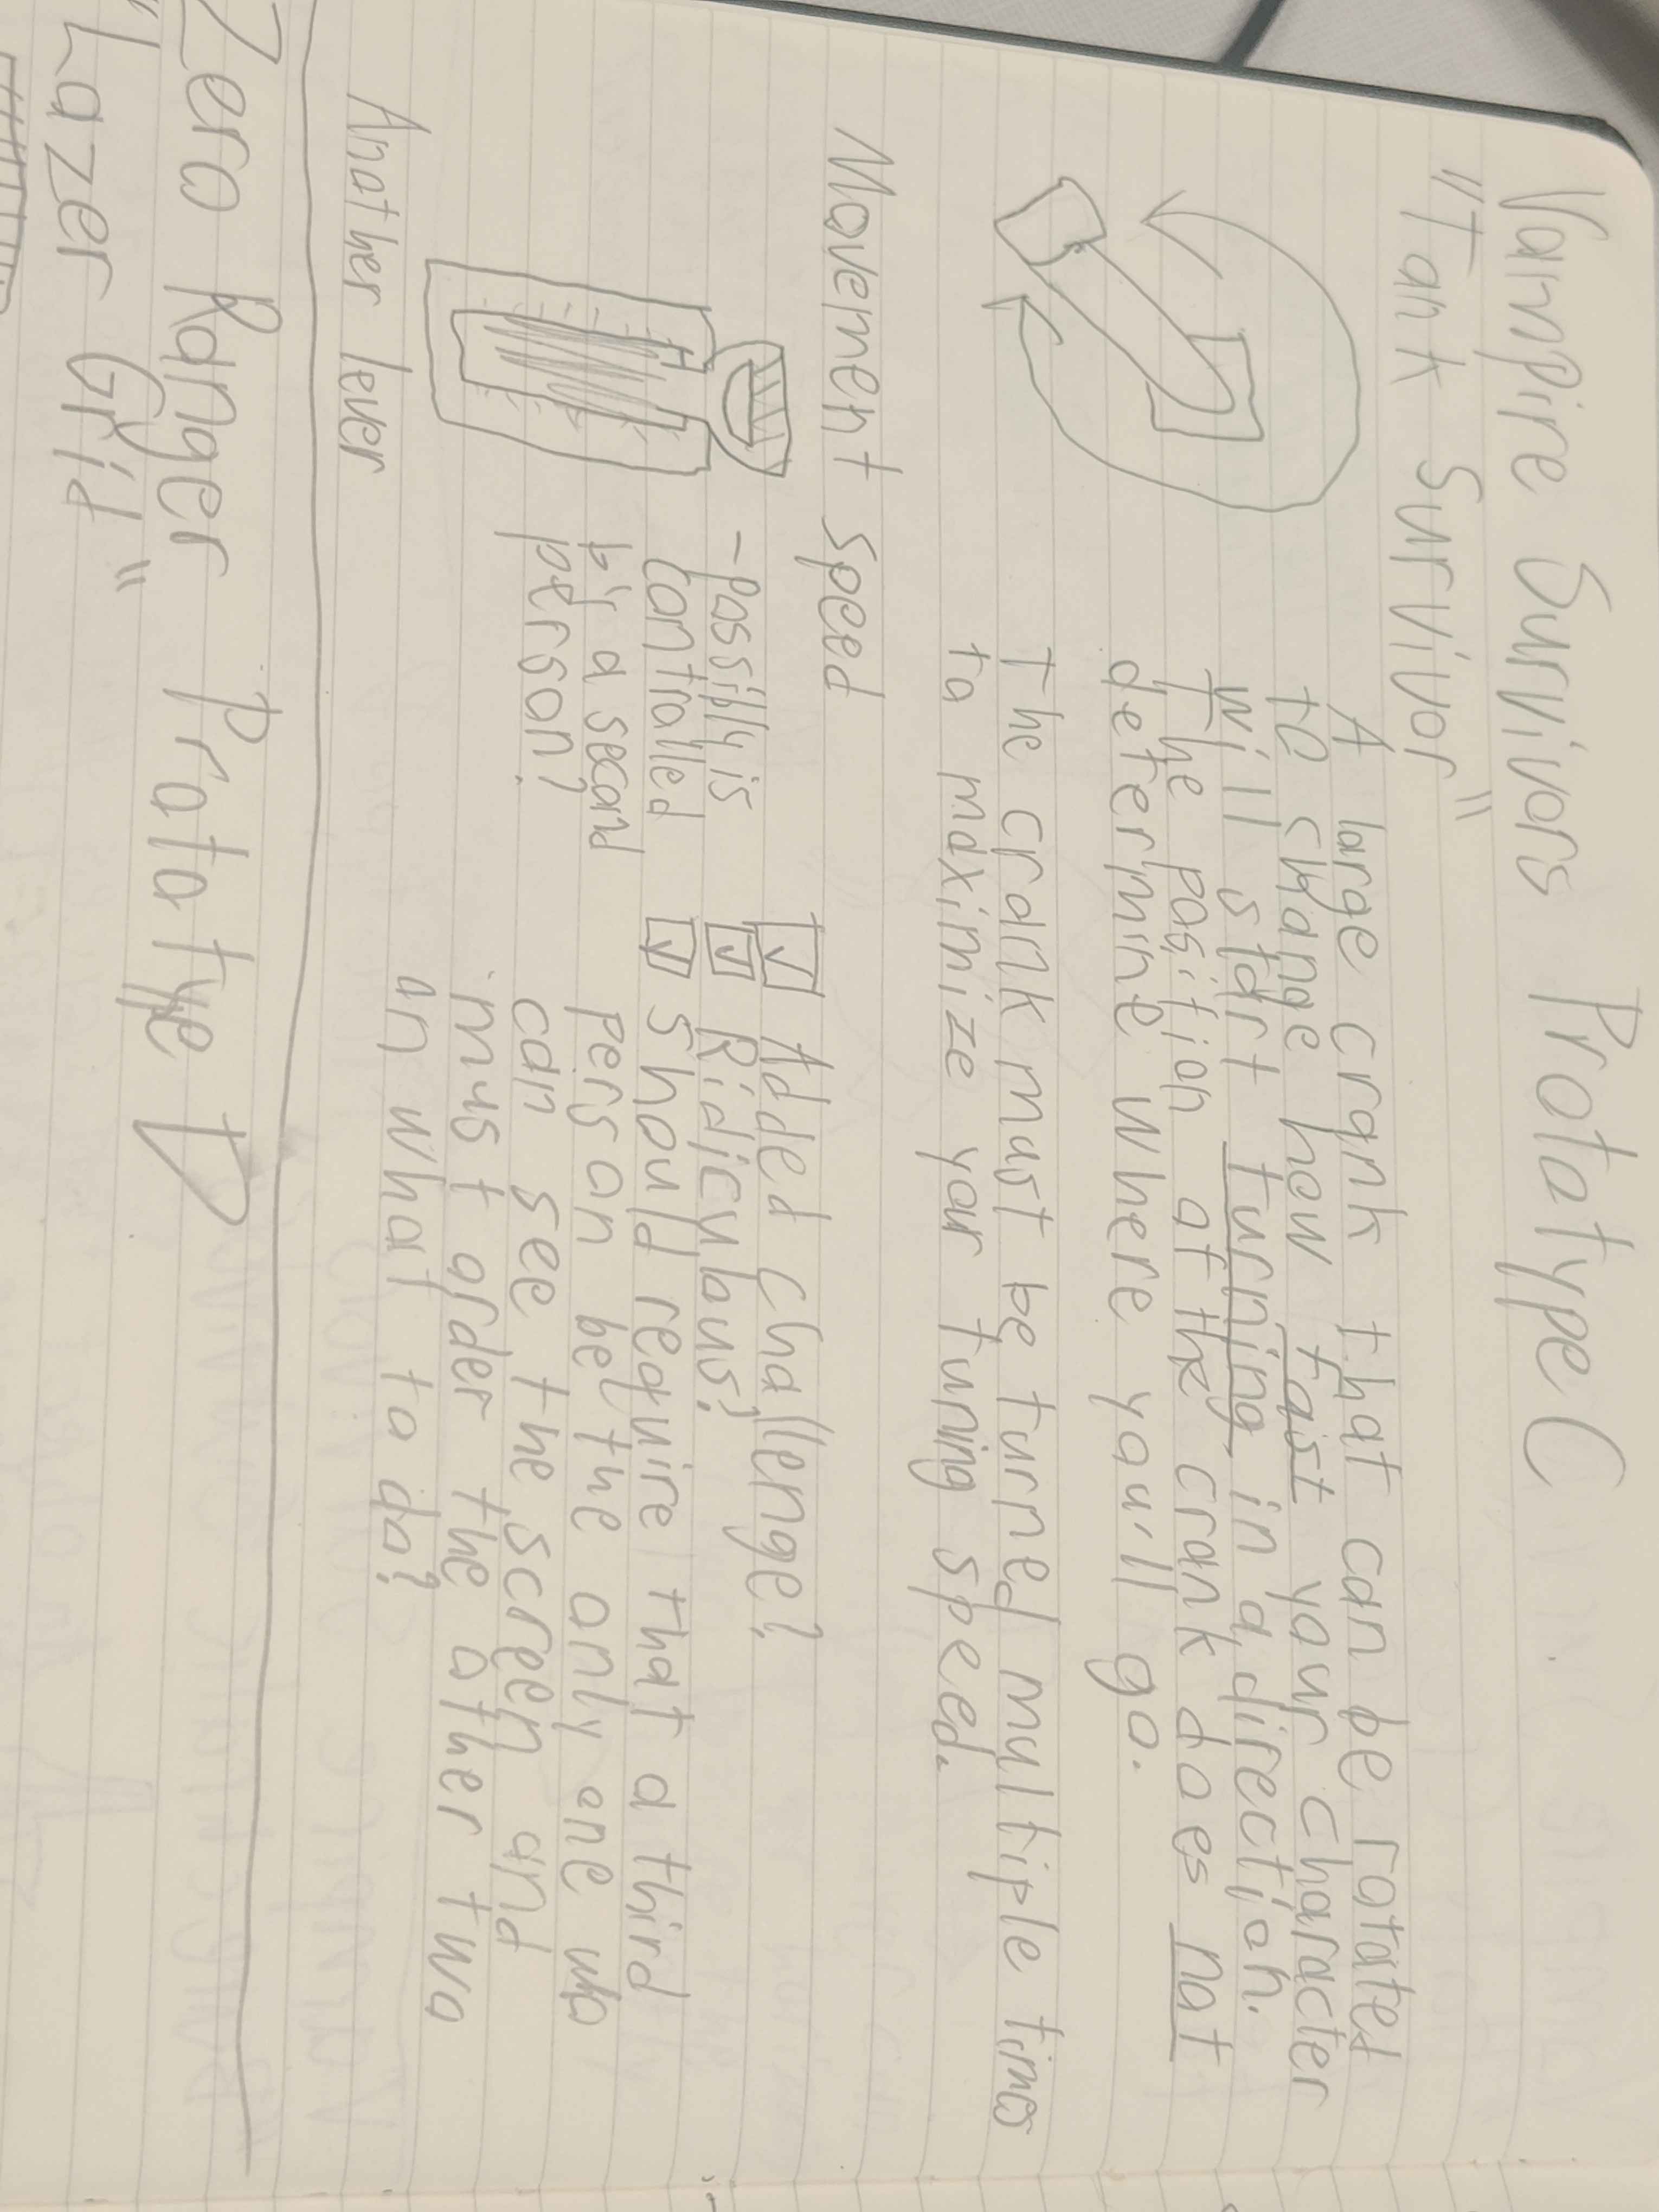 Vampire Survivors Prototype C
"Tank Survivor"
A large crank that can be rotated
to change how fast your character
will start turning in a direction.
The position of the crank does not
determine where you'll go.
The crank must be turned multiple times
to maximize your turning speed.
Movement speed
-possibly is
controlled
by a second
person?
Added challenge?
Ridiculous?
Should require that a third
person be the only one who
can see the screen and
must order the other two
on what to do?
Another lever
Zero Ranger Prototype D
"Lazer Grid"